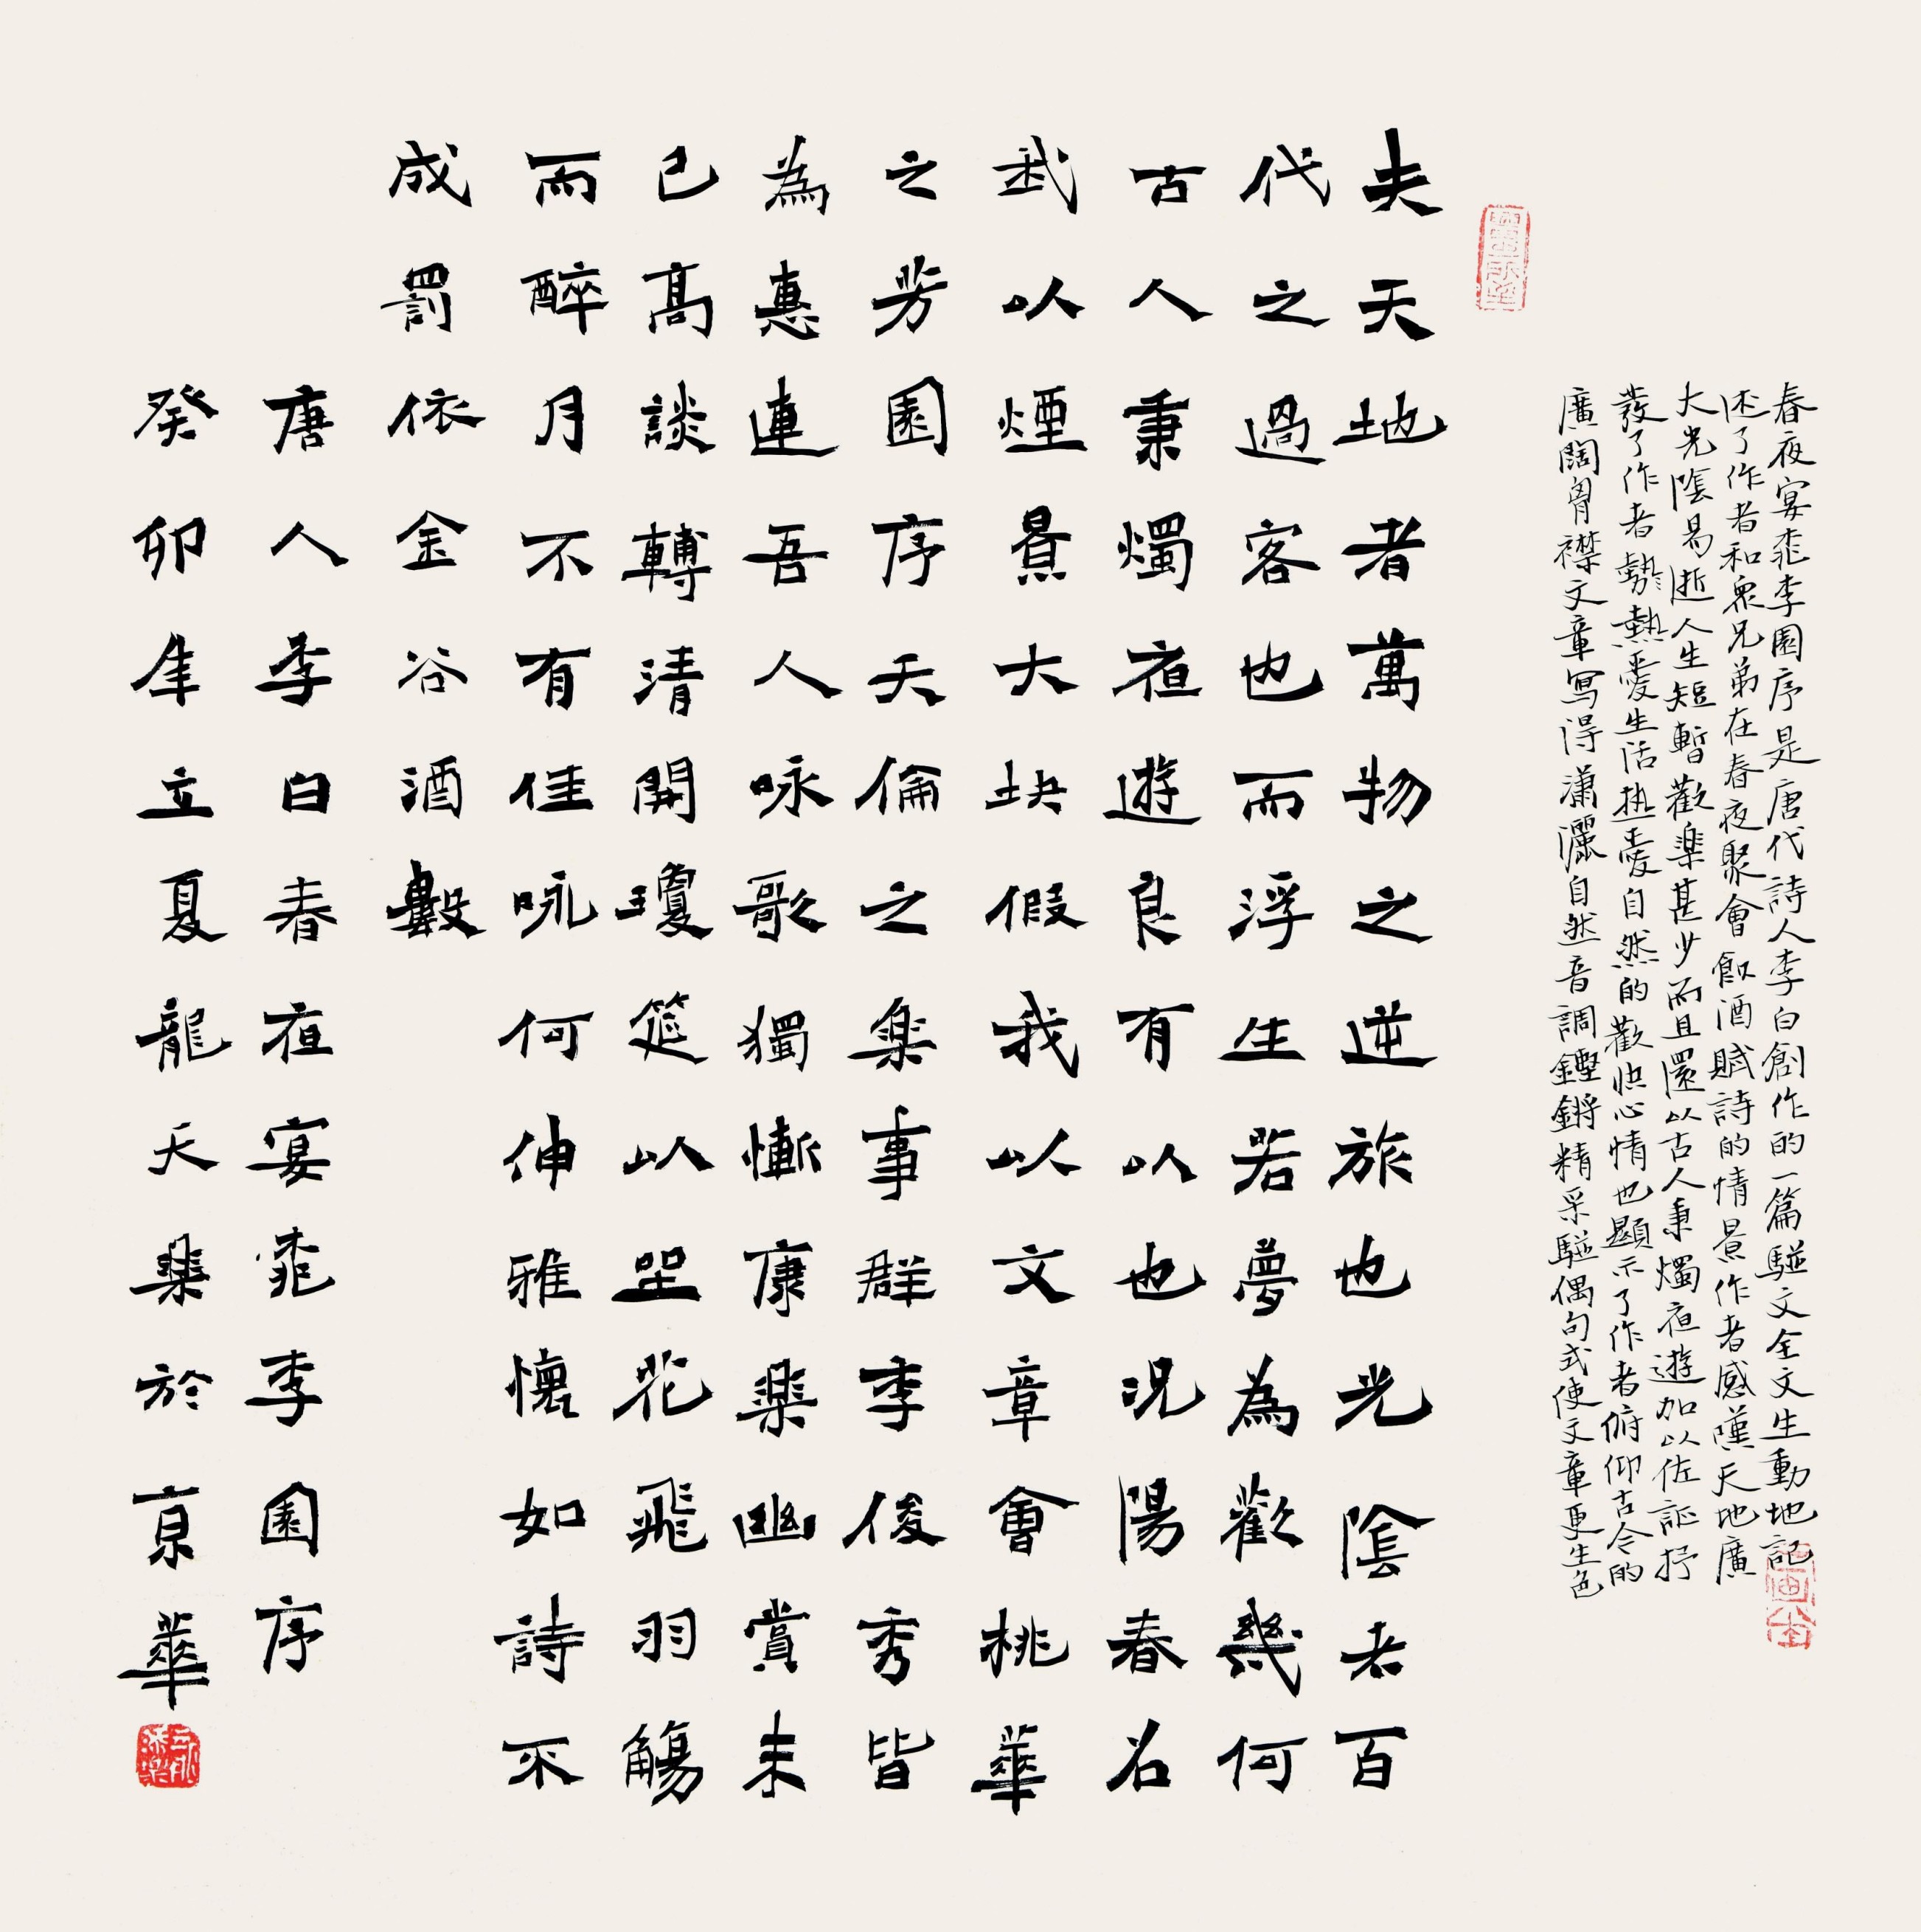 春夜宴桃李園序是唐代詩人李白創作的一篇駢文全文生動地記
述了作者和眾兄弟在春夜聚會飲酒賦詩的情景作者感嘆天地廣
大光陰易逝人生短暫歡樂甚少而且還以古人秉燭夜遊加以佐証抒
發了作者熱愛生活熱愛自然的歡快心情也顯示了作者俯仰古今的
廣闊胷襟文章寫得瀟灑自然音調鏗鏘精采駢偶句式使文章更生色
夫天地者萬物之逆旅也光陰者百
代之過客也而浮生若夢為歡幾何
古人秉燭夜遊良有以也況陽春名
我以煙景大塊假我以文章會桃華
之芳園序天倫之樂事群季俊秀皆
為惠連吾人咏歌獨慚康樂幽賞未
已高談轉清開瓊筵以坐花飛羽觴
而醉月不有佳咏何伸雅懷如詩不
成罰依金谷酒數
唐人李白春夜宴桃李園序
癸卯年立夏龍天樂於京華